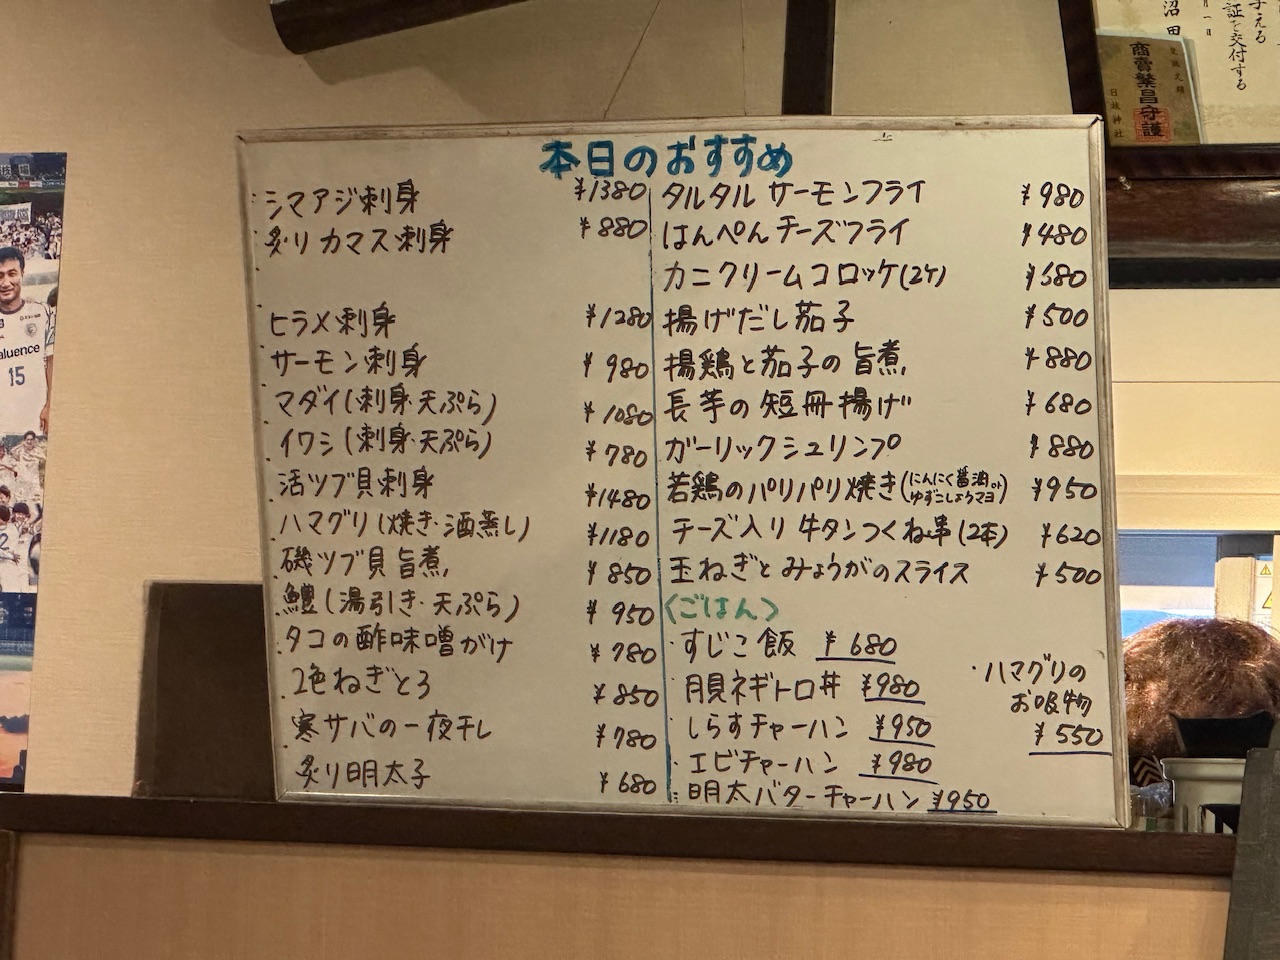 本日のおすすめ
シマアジ刺身 ¥1380
炙りカマス刺身 ¥880
ヒラメ刺身 ¥1280
サーモン刺身 ¥980
マダイ(刺身・天ぷら) ¥1080
イワシ(刺身・天ぷら) ¥780
活ツブ貝刺身 ¥1480
ハマグリ(焼き・酒蒸し) ¥1180
磯ツブ貝旨煮 ¥850
鱧(湯引き・天ぷら) ¥950
タコの酢味噌がけ ¥780
2色ねぎとろ ¥850
寒サバの一夜干し ¥780
炙り明太子 ¥680
タルタルサーモンフライ ¥980
はんぺんチーズフライ ¥480
カニクリームコロッケ(2ケ)
揚げだし茄子 ¥500
揚鶏と茄子の旨煮 ¥880
長芋の短冊揚げ ¥680
ガーリックシュリンプ ¥880
若鶏のパリパリ焼き(にんにく醤油orゆずこしょうマヨ) ¥950
チーズ入り牛タンつくね串(2本) ¥620
玉ねぎとみょうがのスライス ¥500
〈ごはん〉
すじこ飯 ¥680
月見ネギトロ丼 ¥980
しらすチャーハン ¥950
エビチャーハン ¥980
明太バターチャーハン ¥950
・ハマグリの
お吸物
¥550
商売繁昌守護
日枝神社
証を交付する
aluence
15